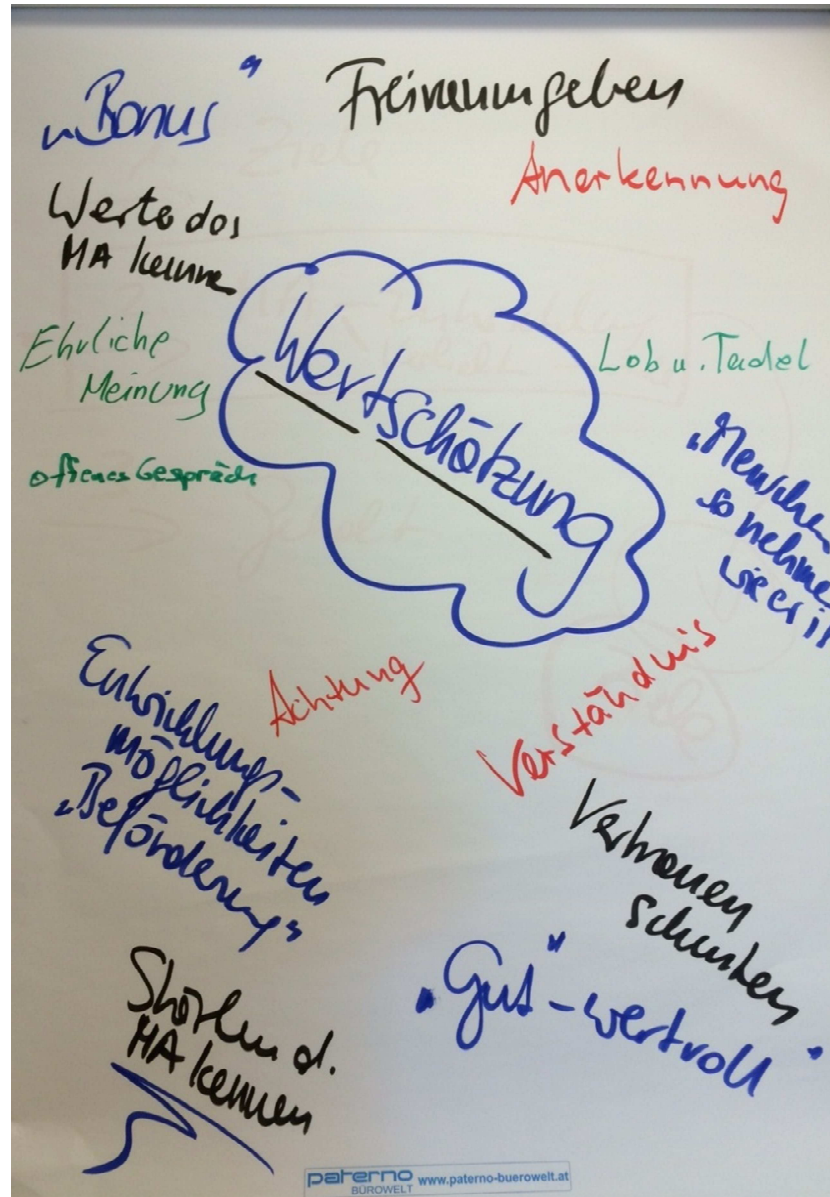 „Bonus“
Freiraum geben
Anerkennung
Werte des
MA kennen
Ehrliche
Meinung
offenes Gespräch
Wertschätzung
Lob u. Tadel
„Menschen
so nehmen
wie er is
Achtung
Verständnis
Entwicklungs-
möglichkeiten
„Beförderung“
Vertrauen
schenken
„Gut“-wertvoll“
Stärken d.
MA kennen
paterno
BÜROWELT
www.paterno-buerowelt.at